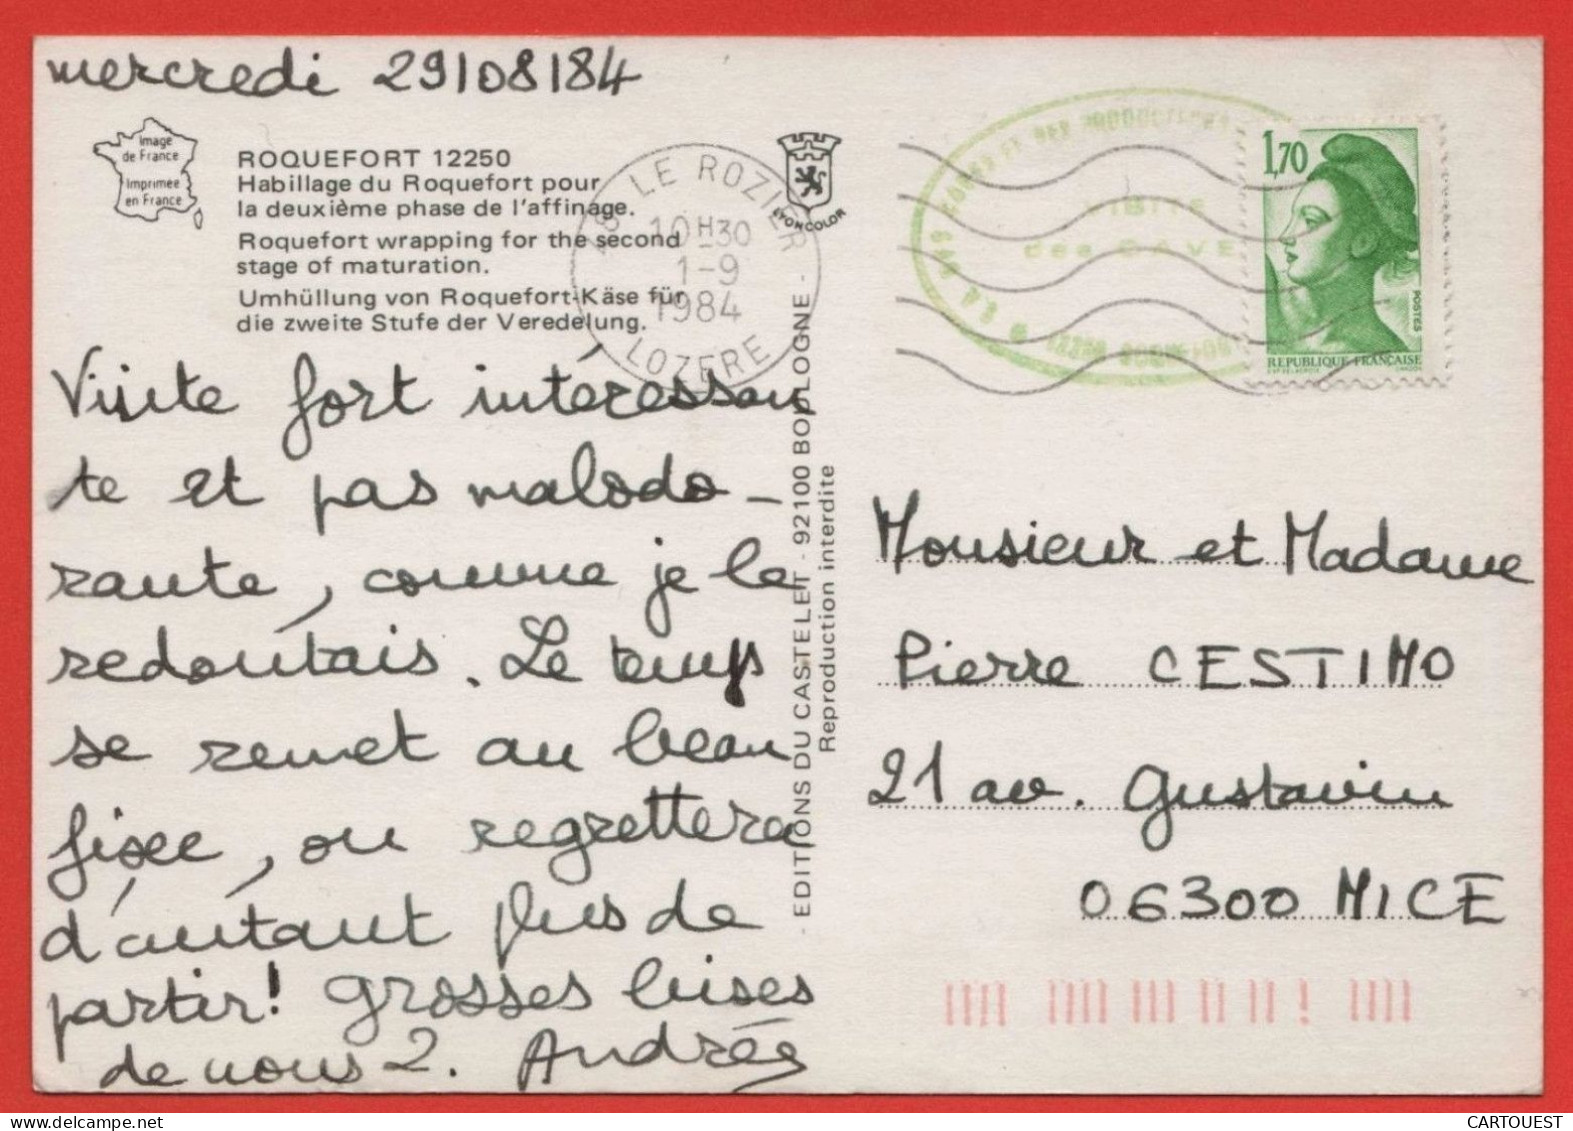 mercredi 29/08/84
Image
de France
Imprimée
en France
ROQUEFORT 12250
Habillage du Roquefort pour
la deuxième phase de l'affinage.
Roquefort wrapping for the second
stage of maturation.
Umhüllung von Roquefort-Käse für
die zweite Stufe der Veredelung.
48 LE ROZIER
10H30
1-9
1984
LOZERE
LYONCOLOR
VISITE
des CAVE
1,70
POSTES
REPUBLIQUE FRANÇAISE
Visite fort intéressan
te et pas malodo-
rante, comme je le
redoutais. Le temps
se remet au beau
fixe, on regrettera
d'autant plus de
partir! Grosses bises
de nous 2. Andrée
- EDITIONS DU CASTELET - 92100 BOULOGNE -
Reproduction interdite
Monsieur et Madame
Pierre CESTIMO
21 av. Gustavin
06300 NICE
CARTOUEST